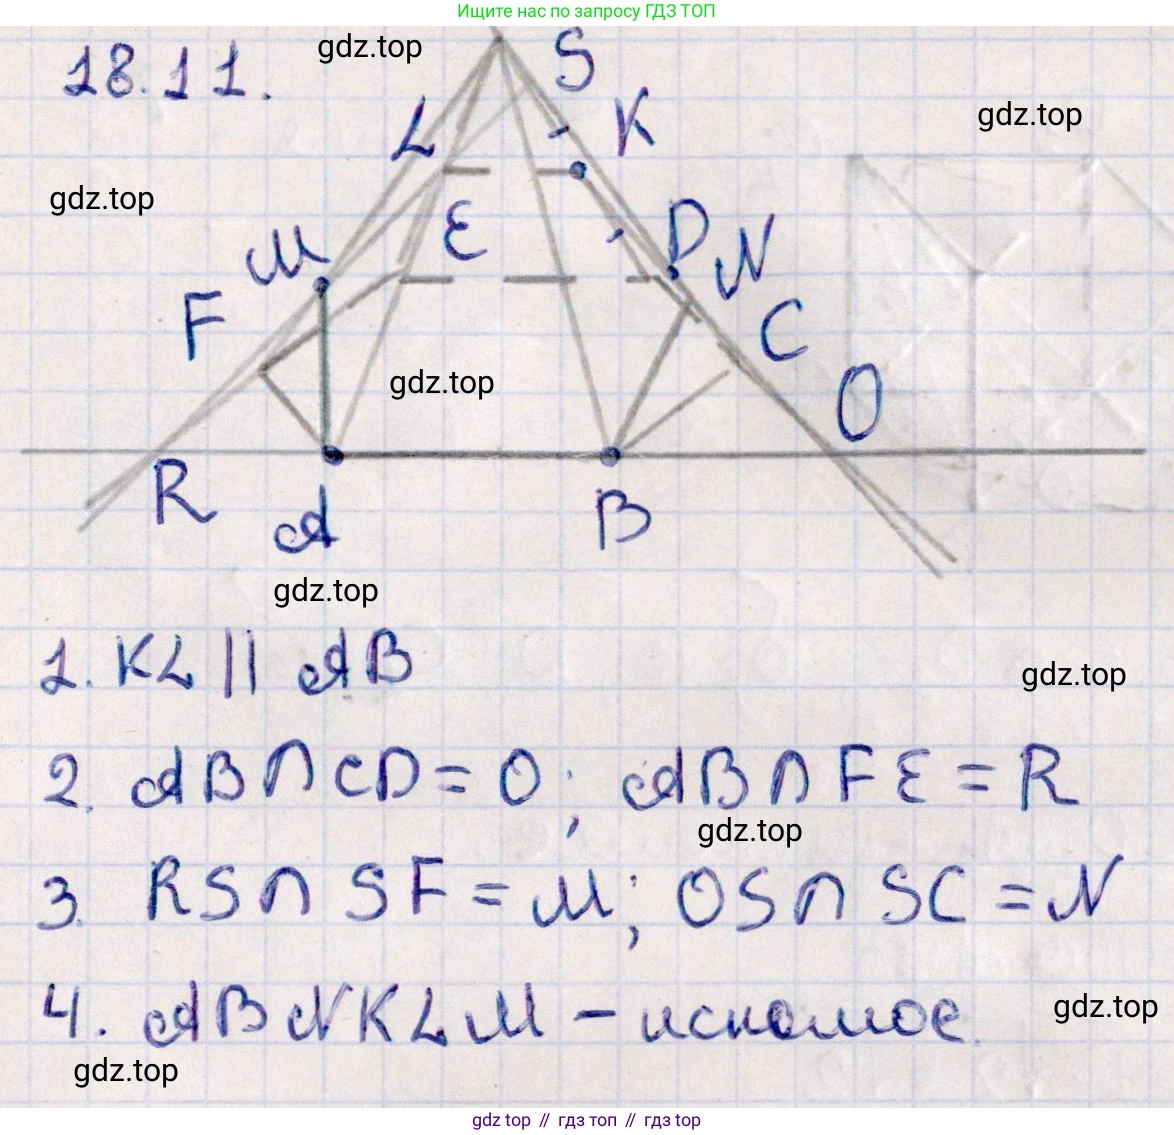 Ищите нас по запросу ГДЗ ТОП
18.11.
gdz.top
S
L
K
gdz.top
gdz.top
M
E
D
N
F
C
gdz.top
O
R
A
B
gdz.top
1. KL || AB
gdz.top
2. AB∩CD=O; AB∩FE=R
gdz.top
3. RS∩SF=M; OS∩SC=N
4. ABNKLM – искомое.
gdz.top
gdz.top
gdz top // гдз топ // gdz top